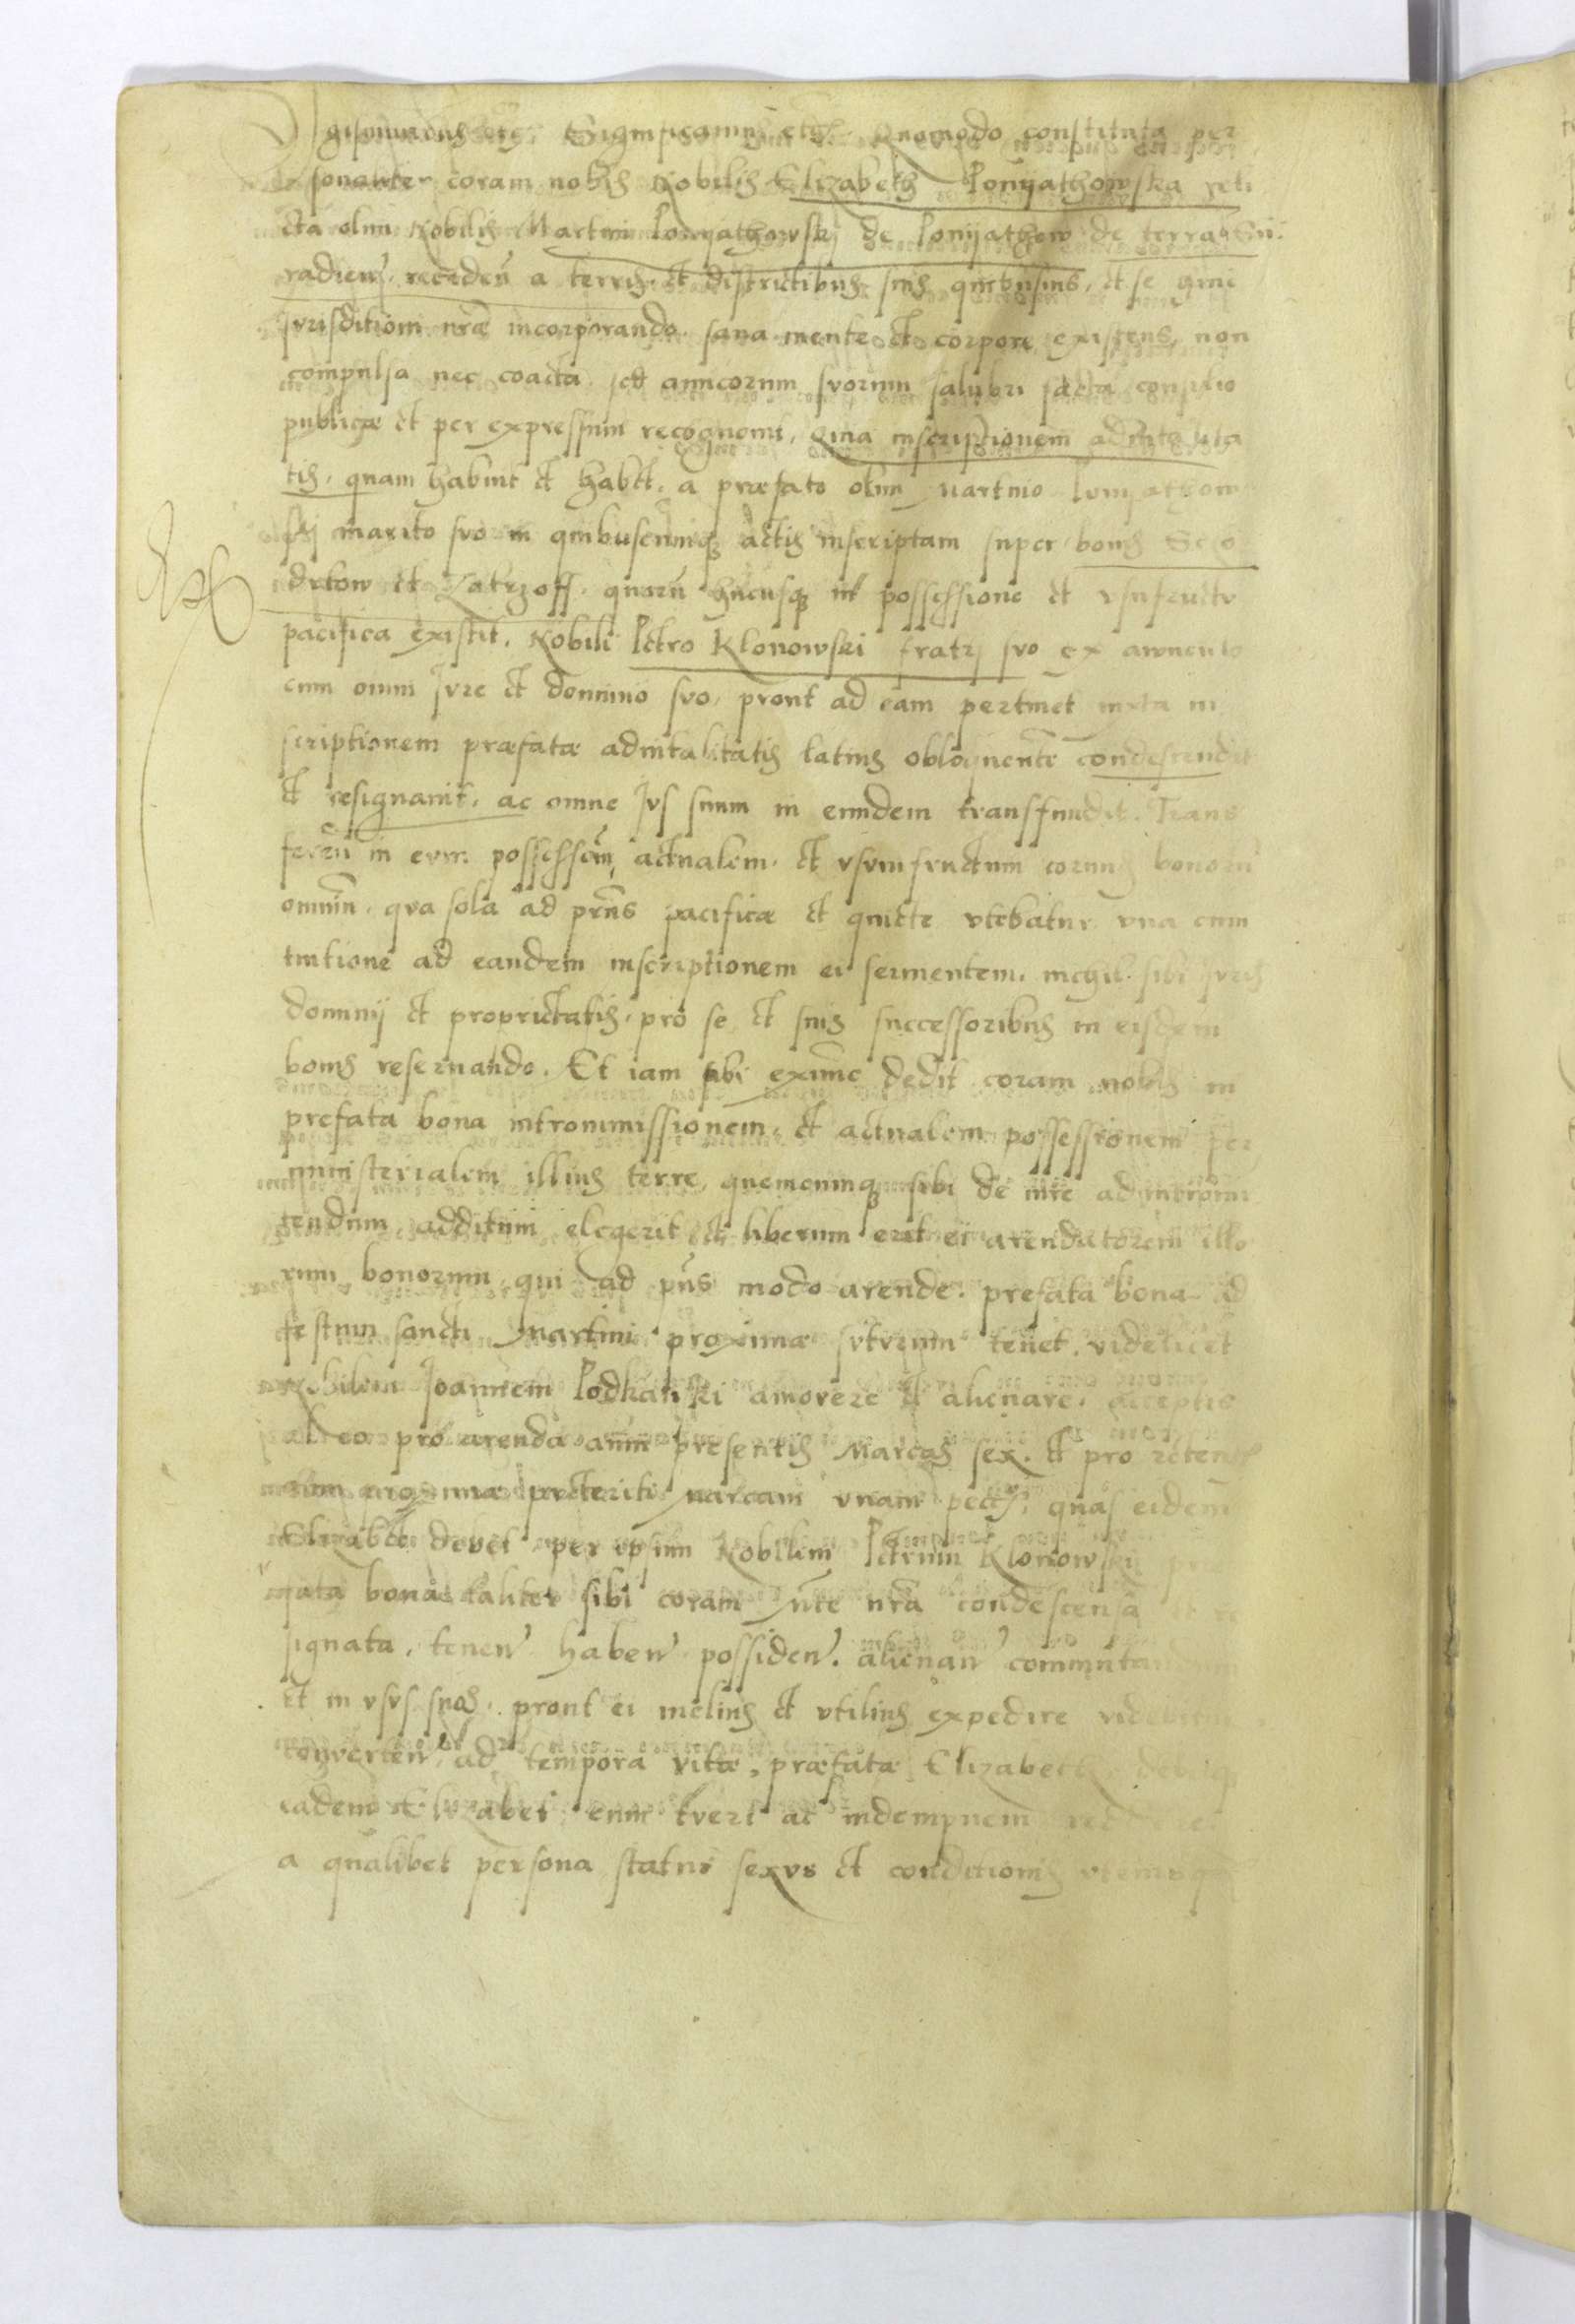 Sigismundus etc. Significamus etc. Quomodo constituta per
sonaliter coram nobis Nobilis Elizabeth Ponyathowska reli
cta olim Nobilis Martini Ponyathowski de Ponyathow de terra Sii
radien. receden̄ a terris et districtibus suis quibusuis, et se huic
Jurisditioni nr̄ae incorporando. sana mente et corpore existens, non
compulsa nec coacta sed amicorum suorum salubri facta consilio
publicæ et per expressum recognouit, Quia inscriptionem aduitalita
tis, quam habuit et habet. a præfato olim Martino Ponyathow
ski marito suo in quibuscumq; actis inscriptam super bonis
et quorū hucusq; in possessione et vsufructu
pacifica existit. Nobili Petro Klonowski fratri suo ex
cum omni Jure et dominio suo, prout ad eam pertinet iuxta in
scriptionem præfatæ aduitalitatis latius obloquente condescendit
et resignauit, ac omne Jus suum in eundem transfundit. Trans
feren̄ in eum possessio͞em actualem. et vsumfructum eorum bonorū
omniū. qua sola ad prn̄s pacificæ et quiete vtebatur vna cum
tuitione ad eandem inscriptionem ei seruientem. sibi Juris
dominij et proprietatis, pro se et suis successoribus in eisdem
bonis reseruando. Et iam sibi ex nunc dedit coram nobis in
prefata bona intromissionem, et actualem possessionem per
ministerialem illius terre, quemcumq; sibi de ad intromi
tendum additum elegerit et liberum erit ei arendatorem illo
rum bonorum qui ad pn̄s modo arende. prefata bona ad
festum sancti Martini proximæ futurum tenet. videlicet
Nobilem Joannem Podkanski amovere et alienare. acceptis
ab eo pro arenda anni presentis Marcas sex. et pro
anni præteriti marcam vnam pec etc. quas eidem
Elizabet debet per ipsum Nobilem Petrum Klonowski
bona taliter sibi coram nr̄a condescensa et re
signata, tenen̄ haben̄ possiden̄. alienan̄ commutandum
et in vsus suos. prout ei melius et vtilius expedire videbitur
conuerten̄ ad tempora vitæ, præfatæ Elizabeth. debebitq;
eadem Elizabet eum tueri ac indempnem reddere
a qualibet persona status sexus et conditionis